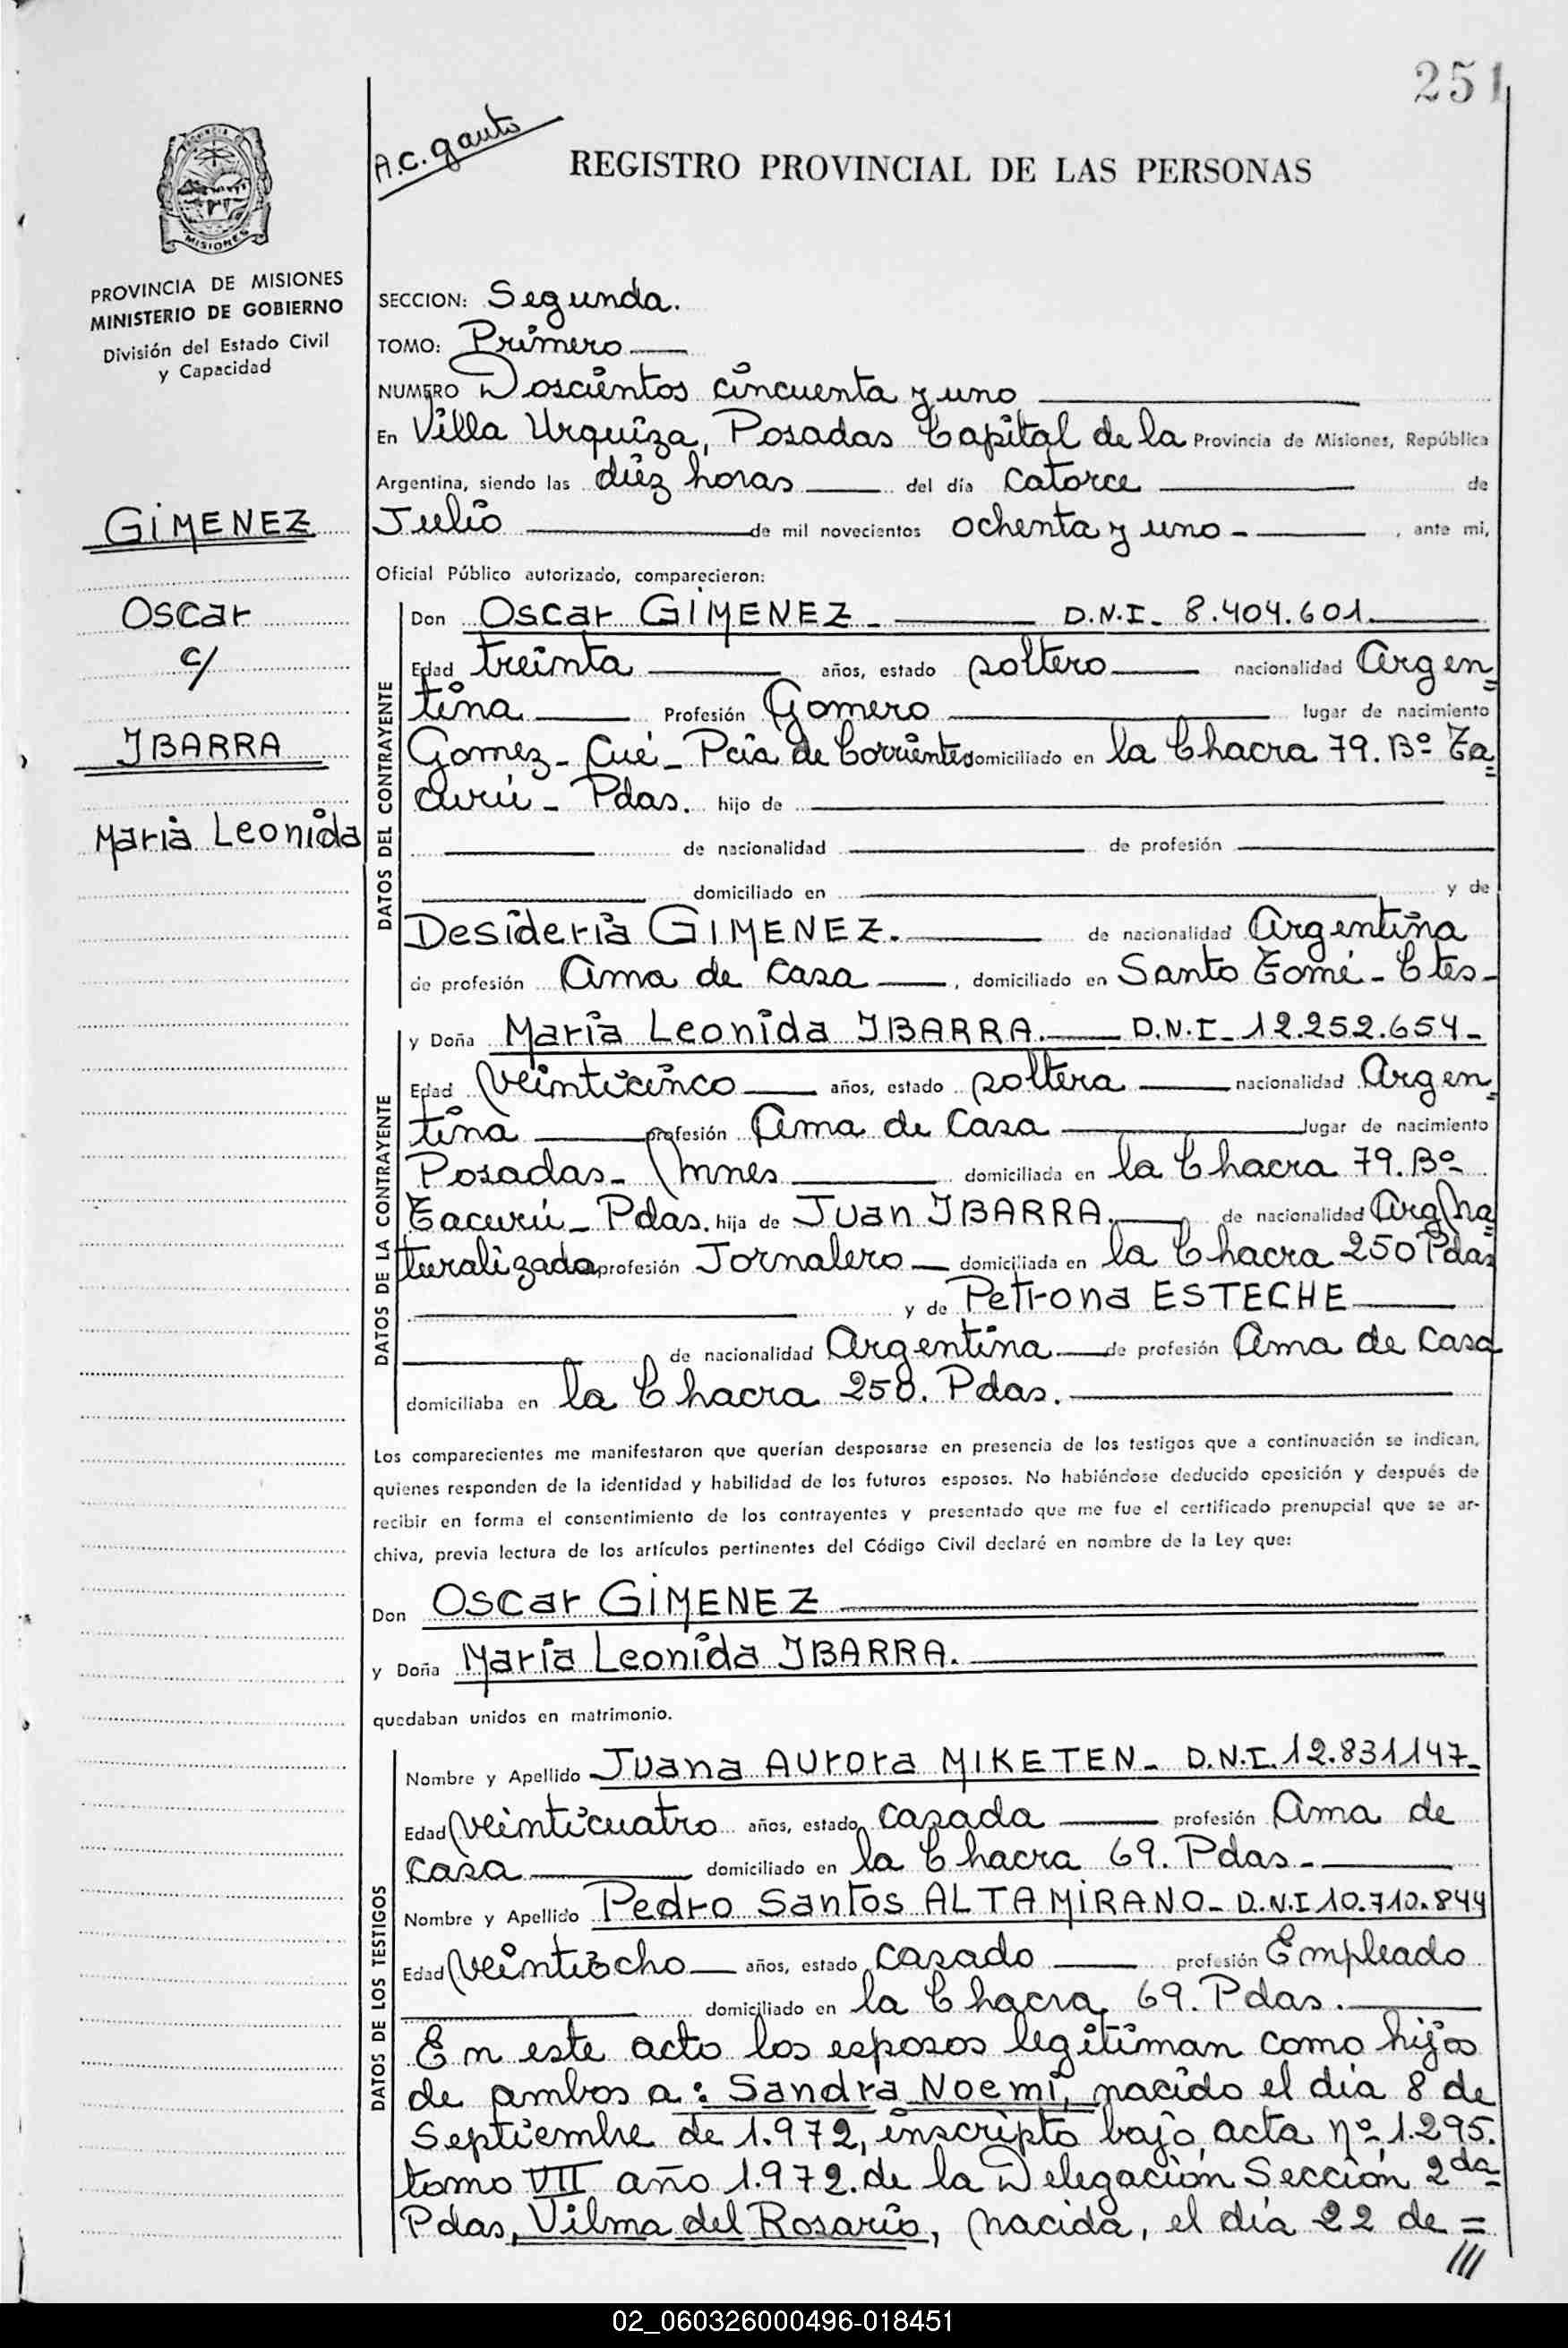 251
A.C. gauto
REGISTRO PROVINCIAL DE LAS PERSONAS
MISIONES
PROVINCIA DE MISIONES
MINISTERIO DE GOBIERNO
División del Estado Civil
y Capacidad
GIMENEZ
Oscar
c/
IBARRA
María Leonida
SECCION: Segunda.
TOMO: Primero
NUMERO Doscientos cincuenta y uno
En Villa Urquiza, Posadas Capital de la Provincia de Misiones, República
Argentina, siendo las diez horas del día catorce de
Julio de mil novecientos ochenta y uno - , ante mi,
Oficial Público autorizado, comparecieron:
DATOS DEL CONTRAYENTE
Don Oscar GIMENEZ - D.N.I. 8.404.601.
Edad treinta años, estado soltero nacionalidad Argen=
tina Profesión Gomero lugar de nacimiento
Gomez - Cué - Pcia de Corrientes domiciliado en la Chacra 79. Bº Ta=
curú - Pdas. hijo de
de nacionalidad de profesión
domiciliado en y de
Desideria GIMENEZ. de nacionalidad Argentina
de profesión Ama de Casa , domiciliado en Santo Tomé - Ctes -
DATOS DE LA CONTRAYENTE
y Doña María Leonida IBARRA. D.N.I - 12.252.654 -
Edad Veinticinco años, estado soltera nacionalidad Argen=
tina profesión Ama de Casa lugar de nacimiento
Posadas - Mnes domiciliada en la Chacra 79. Bº
Tacurú - Pdas. hija de Juan IBARRA. de nacionalidad Arg/na=
turalizado profesión Jornalero domiciliada en la Chacra 250 Pdas
y de Petrona ESTECHE
de nacionalidad Argentina de profesión Ama de Casa
domiciliaba en la Chacra 250. Pdas.
Los comparecientes me manifestaron que querían desposarse en presencia de los testigos que a continuación se indican,
quienes responden de la identidad y habilidad de los futuros esposos. No habiéndose deducido oposición y después de
recibir en forma el consentimiento de los contrayentes y presentado que me fue el certificado prenupcial que se ar-
chiva, previa lectura de los artículos pertinentes del Código Civil declaré en nombre de la Ley que:
Don Oscar GIMENEZ
y Doña María Leonida IBARRA.
quedaban unidos en matrimonio.
DATOS DE LOS TESTIGOS
Nombre y Apellido Juana Aurora MIKETEN - D.N.I. 12.831147 -
Edad Veinticuatro años, estado casada profesión Ama de
casa domiciliado en la Chacra 69. Pdas -
Nombre y Apellido Pedro Santos ALTAMIRANO - D.N.I 10.710.844
Edad Veintiocho años, estado casado profesión Empleado
domiciliado en la Chacra 69. Pdas.
En este acto los esposos legitiman como hijos
de ambos a: Sandra Noemí, nacido el día 8 de
Septiembre de 1.972, inscripto bajo acta nº 1.295.
tomo VII año 1.972. de la Delegación Sección 2da=
Pdas, Vilma del Rosario, nacida, el día 22 de =
///
02_060326000496-018451